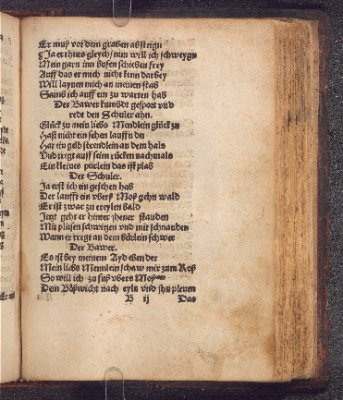 Er muß vor dem graben absteign
Ja er thus gleych / nun will ich schweygn
Mein garn inn busen schieben frey
Auff das er mich nicht kenn darbey
Will laynen mich an meinen stab
Sams ich auff ein zu warten hab
Der Bawer kumbdt gesport vnd
redt den Schuler ahn.
Glück zu mein liebs Mendlein glück zu
Hast nicht ein sehen lauffn du
Hat ein gelb strendlein an dem hals
Vnd tregt auff seim rücken nachmals
Ein kleines pürlein das ist plab
Der Schuler.
Ja erst ich ein gesehen hab
Der laufft ein vberß Moß gehn wald
Er ist zwar zu ereylen bald
Jetzt geht er hinter yhener stauden
Mit plasen schwitzen vnd mit schnauden
Wann er tregt an dem bürlein schwer
Der Bawer.
Es ist bey meinem Ayd eben der
Mein liebs Mennlein schaw mir zum Roß
So will ich zu fuß vbers Moß
Dem Bößwicht nach eyln vnd jhn plewen
B ij Das